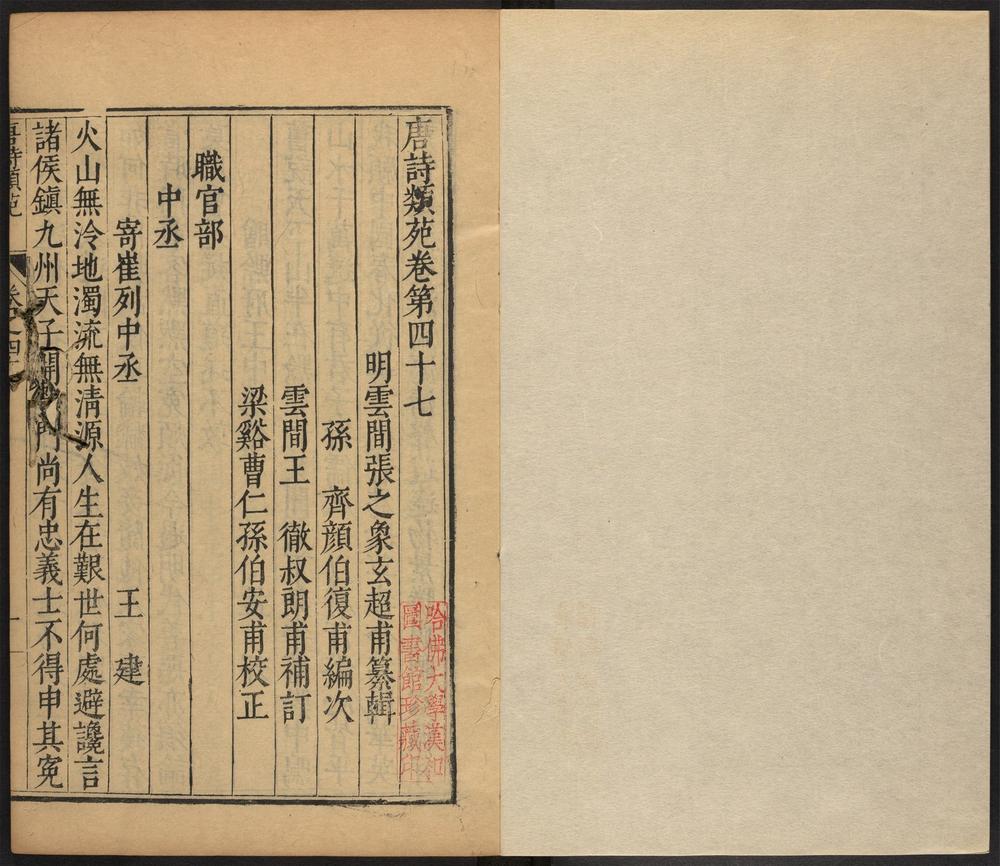 唐詩類苑卷第四十七
明雲間張之象玄超甫纂輯
孫 齊顏伯復甫編次
雲間王 徹叔朗甫補訂
梁谿曹仁孫伯安甫校正
職官部
中丞
寄崔列中丞 王 建
火山無冷地濁流無清源人生在艱世何處避讒言
諸侯鎮九州天子開 門尚有忠義士不得申其寃
唐詩類苑
卷之四十
一
哈佛大學漢和
圖書館珍藏印